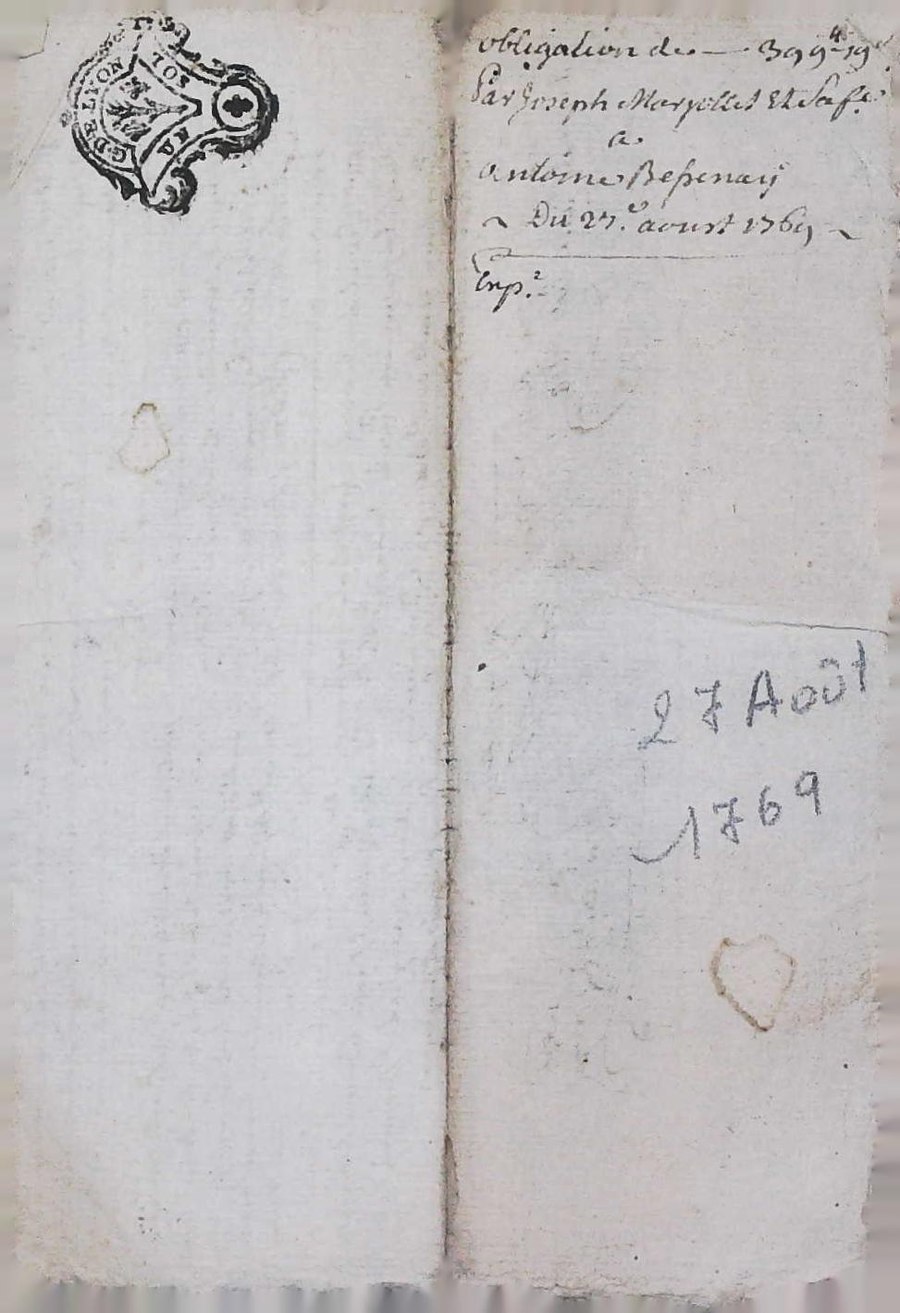 G. DE LYON
SOL
obligation de — 399₶ 19ˢ
Par Joseph Marjollet Et Sa fᵉ
a
antoine Bessenay
~ Du 27.ᵉ aoust 1769 ~
Exp.ᵉ
27 Août
1769